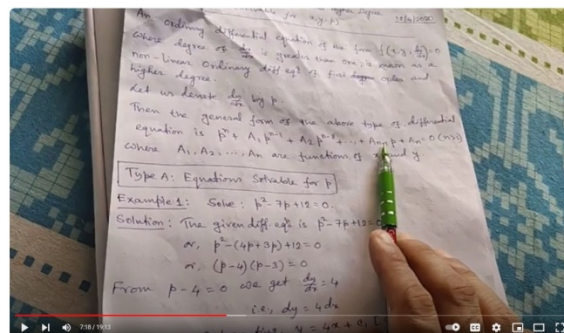 18/4/2020
An ordinary differential equation of the form f(x, y, dy/dx) = 0
where degree of dy/dx is greater than one, is known as a
non-linear ordinary diff eqn of first order and
higher degree.
Let us denote dy/dx by p.
Then the general form of the above type of differential
equation is pⁿ + A₁pⁿ⁻¹ + A₂pⁿ⁻² + ... + Aₙ₋₁p + Aₙ = 0
where A₁, A₂, ..., Aₙ are functions of x and y
Type A: Equations Solvable for p
Example 1: Solve: p² - 7p + 12 = 0.
Solution: The given diff. eqn is p² - 7p + 12 = 0
or, p² - (4p + 3p) + 12 = 0
or, (p - 4)(p - 3) = 0
From p - 4 = 0 we get dy/dx = 4
i.e., dy = 4dx
y = 4x + c₁
7:18 / 19:13